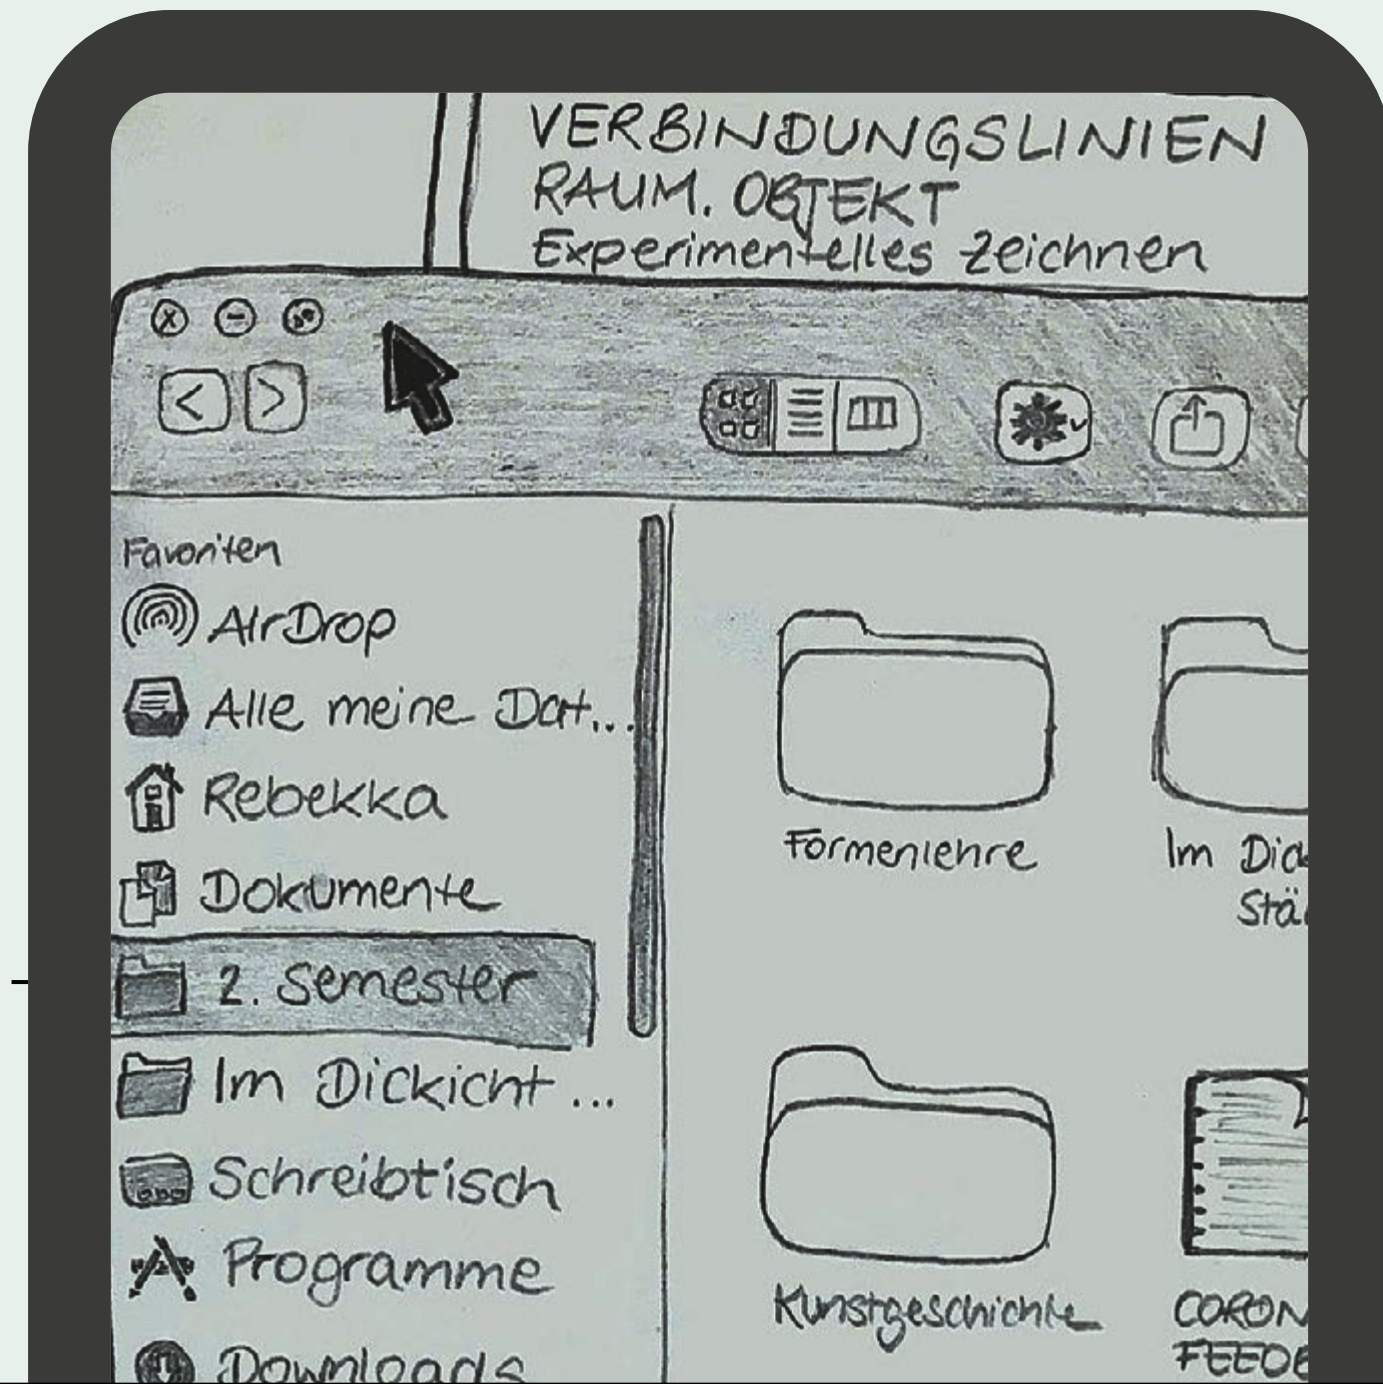 VERBINDUNGSLINIEN
RAUM. OBJEKT
Experimentelles Zeichnen
Favoriten
AirDrop
Alle meine Dat...
Rebekka
Dokumente
2. Semester
Im Dickicht ...
Schreibtisch
Programme
Downloads
Formenlehre
Im Dick
Stä
Kunstgeschichte
CORON
FEEDB